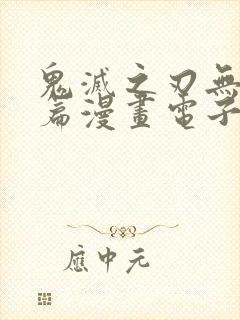 鬼滅之刃無
篇漫畫電子
應中元